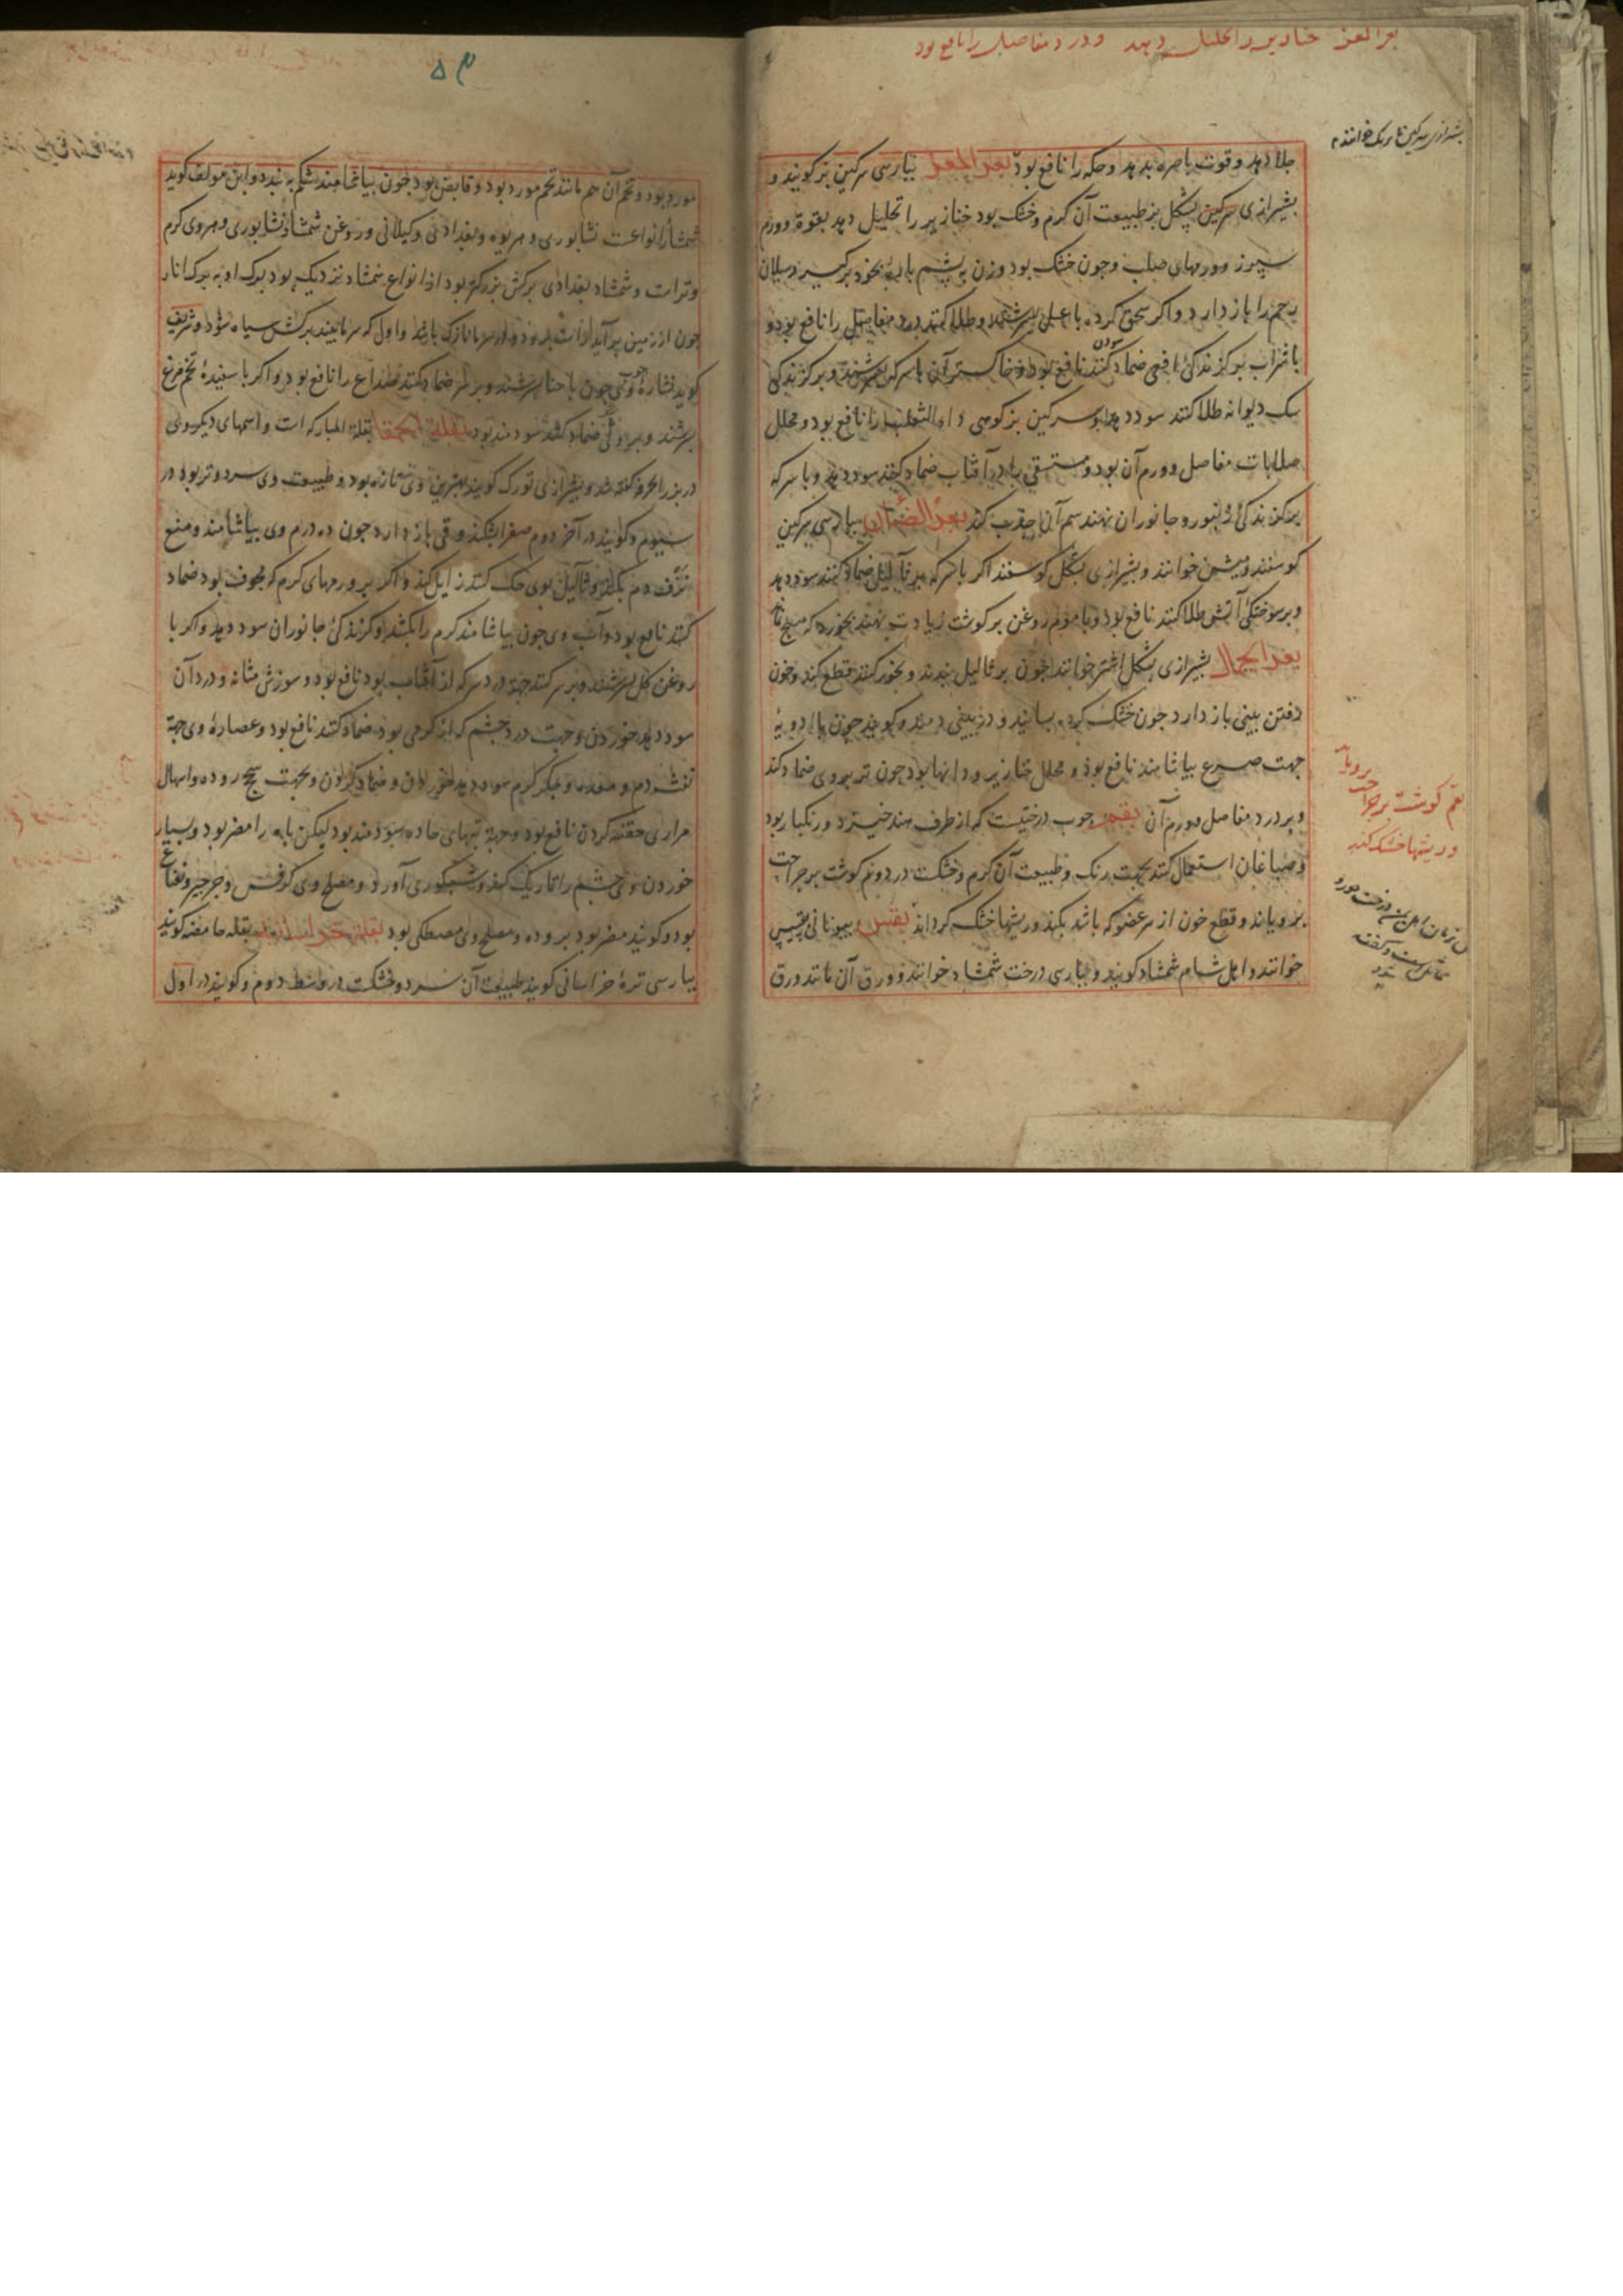 بعر المعز خنازیر را تحلیل دهد و درد مفاصل را نافع بود
جلا دهد و قوت باصره بدهد و حکه را نافع بود بعر المعز بپارسی سرکین بز کویند و
بشیرازی سرکین پشکل بز طبیعت آن کرم و خشک بود خنازیر را تحلیل دهد بقوة و ورم
سپرز و ورمهای صلب و چون خشک بود و زن به پشم پاره بخود برکیرد سیلان
رحم را باز دارد و اکر سحق کرده با عسل بسرشند و طلا کنند درد مفاصل را نافع بود و
با شراب بر کزندکی افعی ضماد کنند نافع بود و خاکستر آن با سرکه بسرشند و بر کزندکی
سک دیوانه طلا کنند سود دهد و سرکین بز کوهی داء الثعلب را نافع بود و محلل
صلابات مفاصل و ورم آن بود و مستسقی را در آفتاب ضماد کنند سود دهد و با سرکه
بر کزندکی زنبور و جانوران نهند سم آن جذب کند بعر الضأن بپارسی سرکین
کوسفند و میش خوانند و بشیرازی پشکل کوسفند اکر با سرکه بر ثآلیل ضماد کنند سود دهد
و بر سوختکی آتش طلا کنند نافع بود و با موم روغن بر کوشت زیادت نهند بخورد که
بعر الجمال بشیرازی پشکل اشتر خوانند چون بر ثالیل بندند و بخور کنند قطع کند و خون
رفتن بینی باز دارد چون خشک کرده بسایند و در بینی دمند و کویند چون با ادویه
جهت صرع بیاشامند نافع بود و محلل خنازیر و دانها بود چون تر بر وی ضماد کند
و بر درد مفاصل و ورم آن بقم چوب درختیست که از طرف هند خیزد و رنکبار بود
و صباغان استعمال کنند بجهت رنک و طبیعت آن کرم و خشکت در دوم کوشت بر جراحت
برویاند و قطع خون از هر عضو که باشد بکند و ریشها خشک کرداند بقس بیونانی بقسیس
خوانند و اهل شام شمشاد کویند و بپارسی درخت شمشاد خوانند و ورق آن مانند ورق
بقم کوشت بر جراحت برویاند
و ریشها خشک کند
۵۳
مورد بود و تخم آن هم مانند تخم مورد بود و قابض بود چون بیاشامند شکم به بندد و ابن مولف کوید
شمشاد انواعست نشابوری و هریوه و بغدادی و کیلانی و روغن شمشاد نشابوری و هروی کرم
و تر است و شمشاد بغدادی برکش بزرکتر بود از انواع شمشاد نزدیک بود برک او به برک انار
چون از زمین برآید
کوید نشاره وی چون با حنا بسرشند و بر سر ضماد کنند صداع را نافع بود و اکر با سفیده تخم مرغ
بسرشند و بر وثی ضماد کنند سودمند بود بقلة الحمقا بقلة المبارکه است و اسمهای دیکر وی
در بزر الحر کفته شد و بشیرازی تورک کویند بهترین وی تازه بود و طبیعت وی سرد و تر بود در
سیوم و کویند در آخر دوم صفرا بشکند و قی باز دارد چون ده درم وی بیاشامند و منع
نزف دم بکند و ثآلیل بوی حک کنند زایل کند و اکر بر ورمهای کرم که مخوف بود ضماد
کنند نافع بود و آب وی چون بیاشامند کرم را بکشد و کزندکی جانوران سود دهد و اکر با
روغن کل بسرشند و بر سر کنند جهة درد سر که از آفتاب بود نافع بود و سوزش مثانه و درد آن
سود دهد خوردن و جهت درد چشم که از کرمی بود ضماد کنند نافع بود و عصاره وی جهة
نفث دم و معده و جکر کرم سود دهد خوردن و ضماد کردن و بجهت سحج روده و اسهال
مراری حقنه کردن نافع بود و جهة تبهای حاده سودمند بود لیکن باه را مضر بود و بسیار
خوردن وی چشم را تاریک کند و شبکوری آورد و مصلح وی کرفس و جرجیر و نعناع
بود و کویند مضر بود بروده و مصلح وی مصطکی بود بقلة خراسانیه بقله حامضه کویند
بپارسی تره خراسانی کویند طبیعت آن سرد و خشکست در وسط دوم و کویند در اول